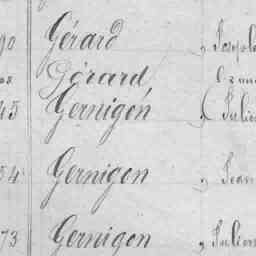 90 Gérard , Joseph
Gérard
45 Gernigon ( Julien
54 Gernigon , Jean
73 Gernigon , Julien